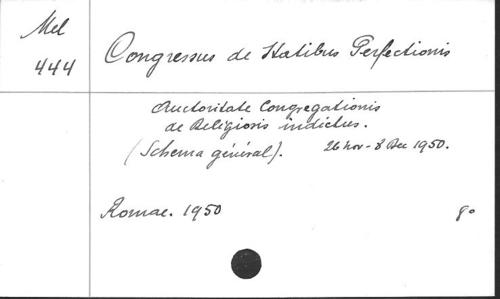 Mel
444
Congressus de Statibus Perfectionis
Auctoritate Congregationis
de Religiosis indictus.
(Schema général). 26 Nov - 8 Dec 1950.
Romae. 1950 8°